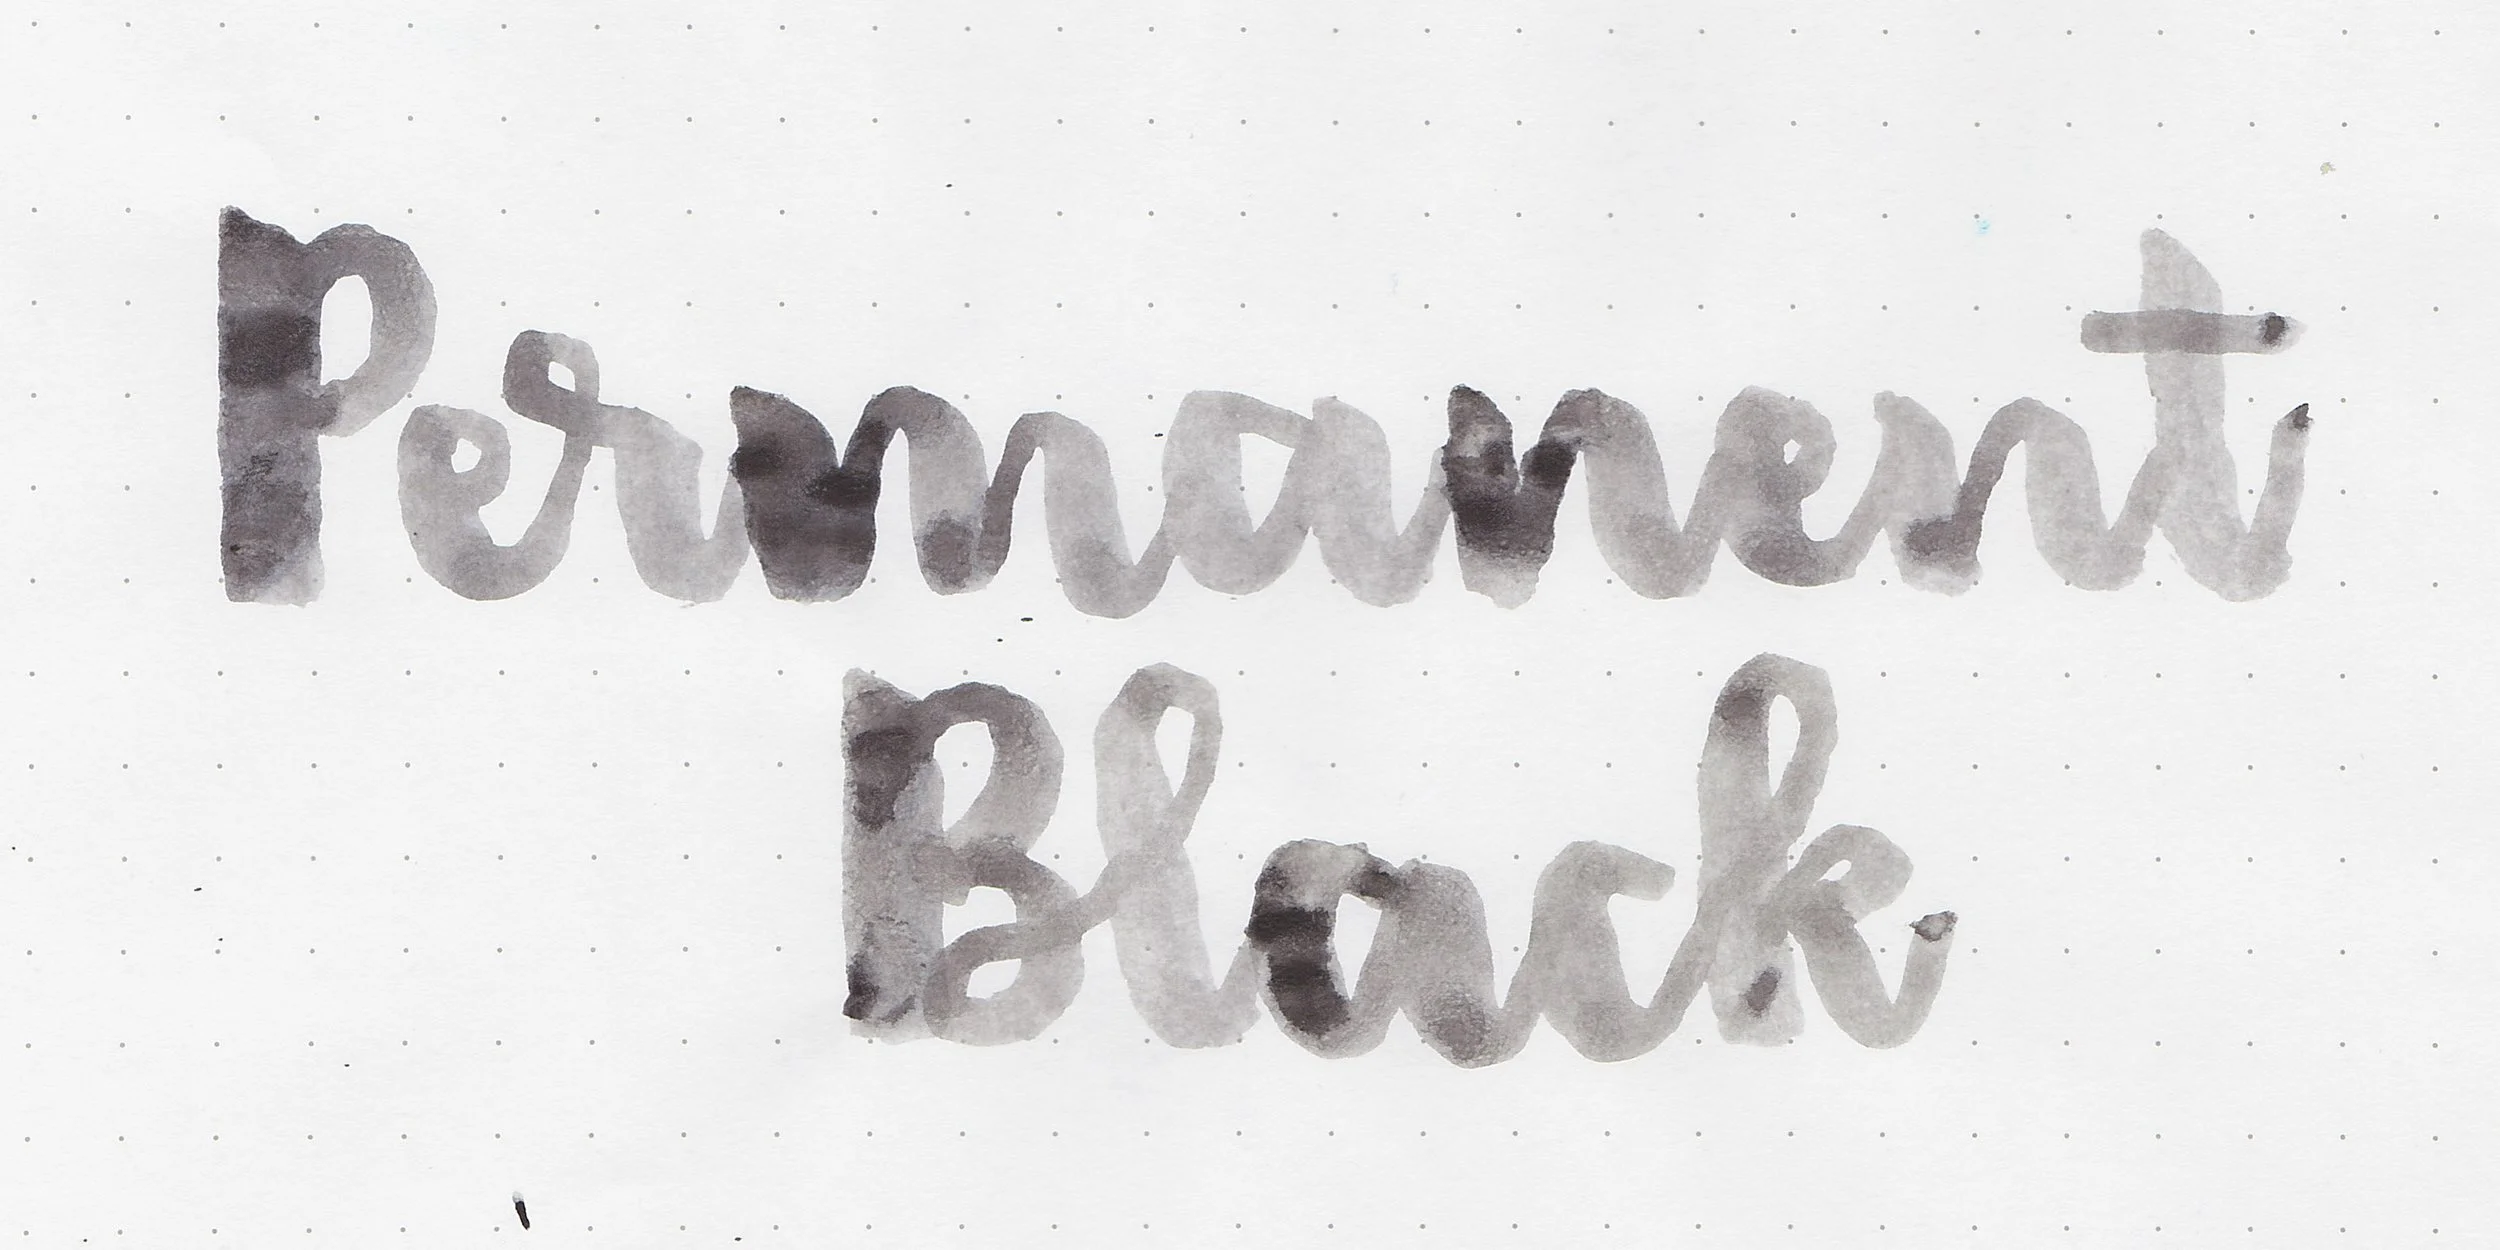 Permanent
Black